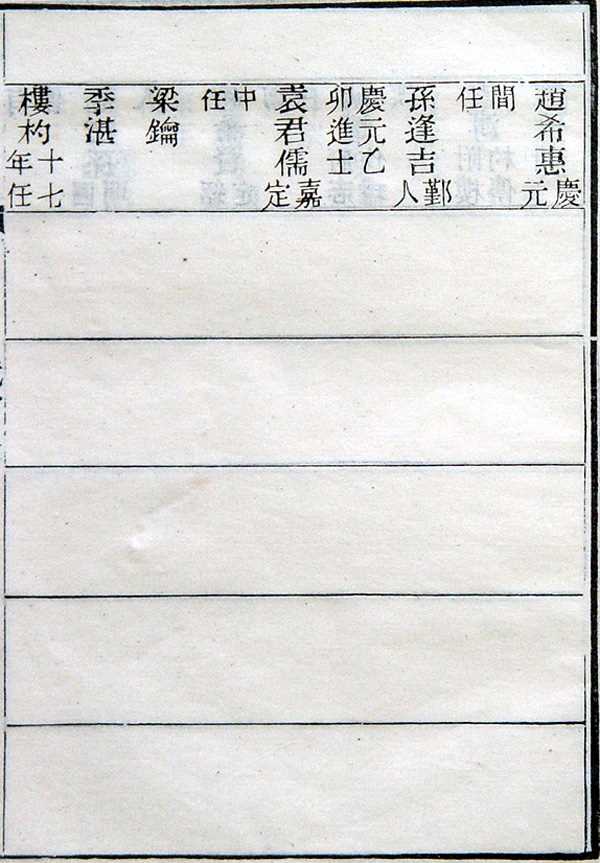 趙希惠慶元
間任
孫逢吉鄞人
慶元乙卯進士
袁君儒嘉定
中任
梁鑰
季湛
樓杓十七年任